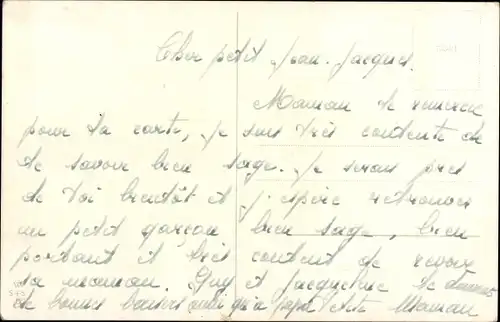 Cher petit Jean-Jacques.
Maman te remercie
pour ta carte, je suis très contente de
te savoir bien sage. Je serai près
de toi bientôt et j'espère retrouver
un petit garçon bien sage, bien
portant et très content de revoir
sa maman. Guy et Jacqueline te donnent
de bonnes baisers ainsi qu'à papa Maman